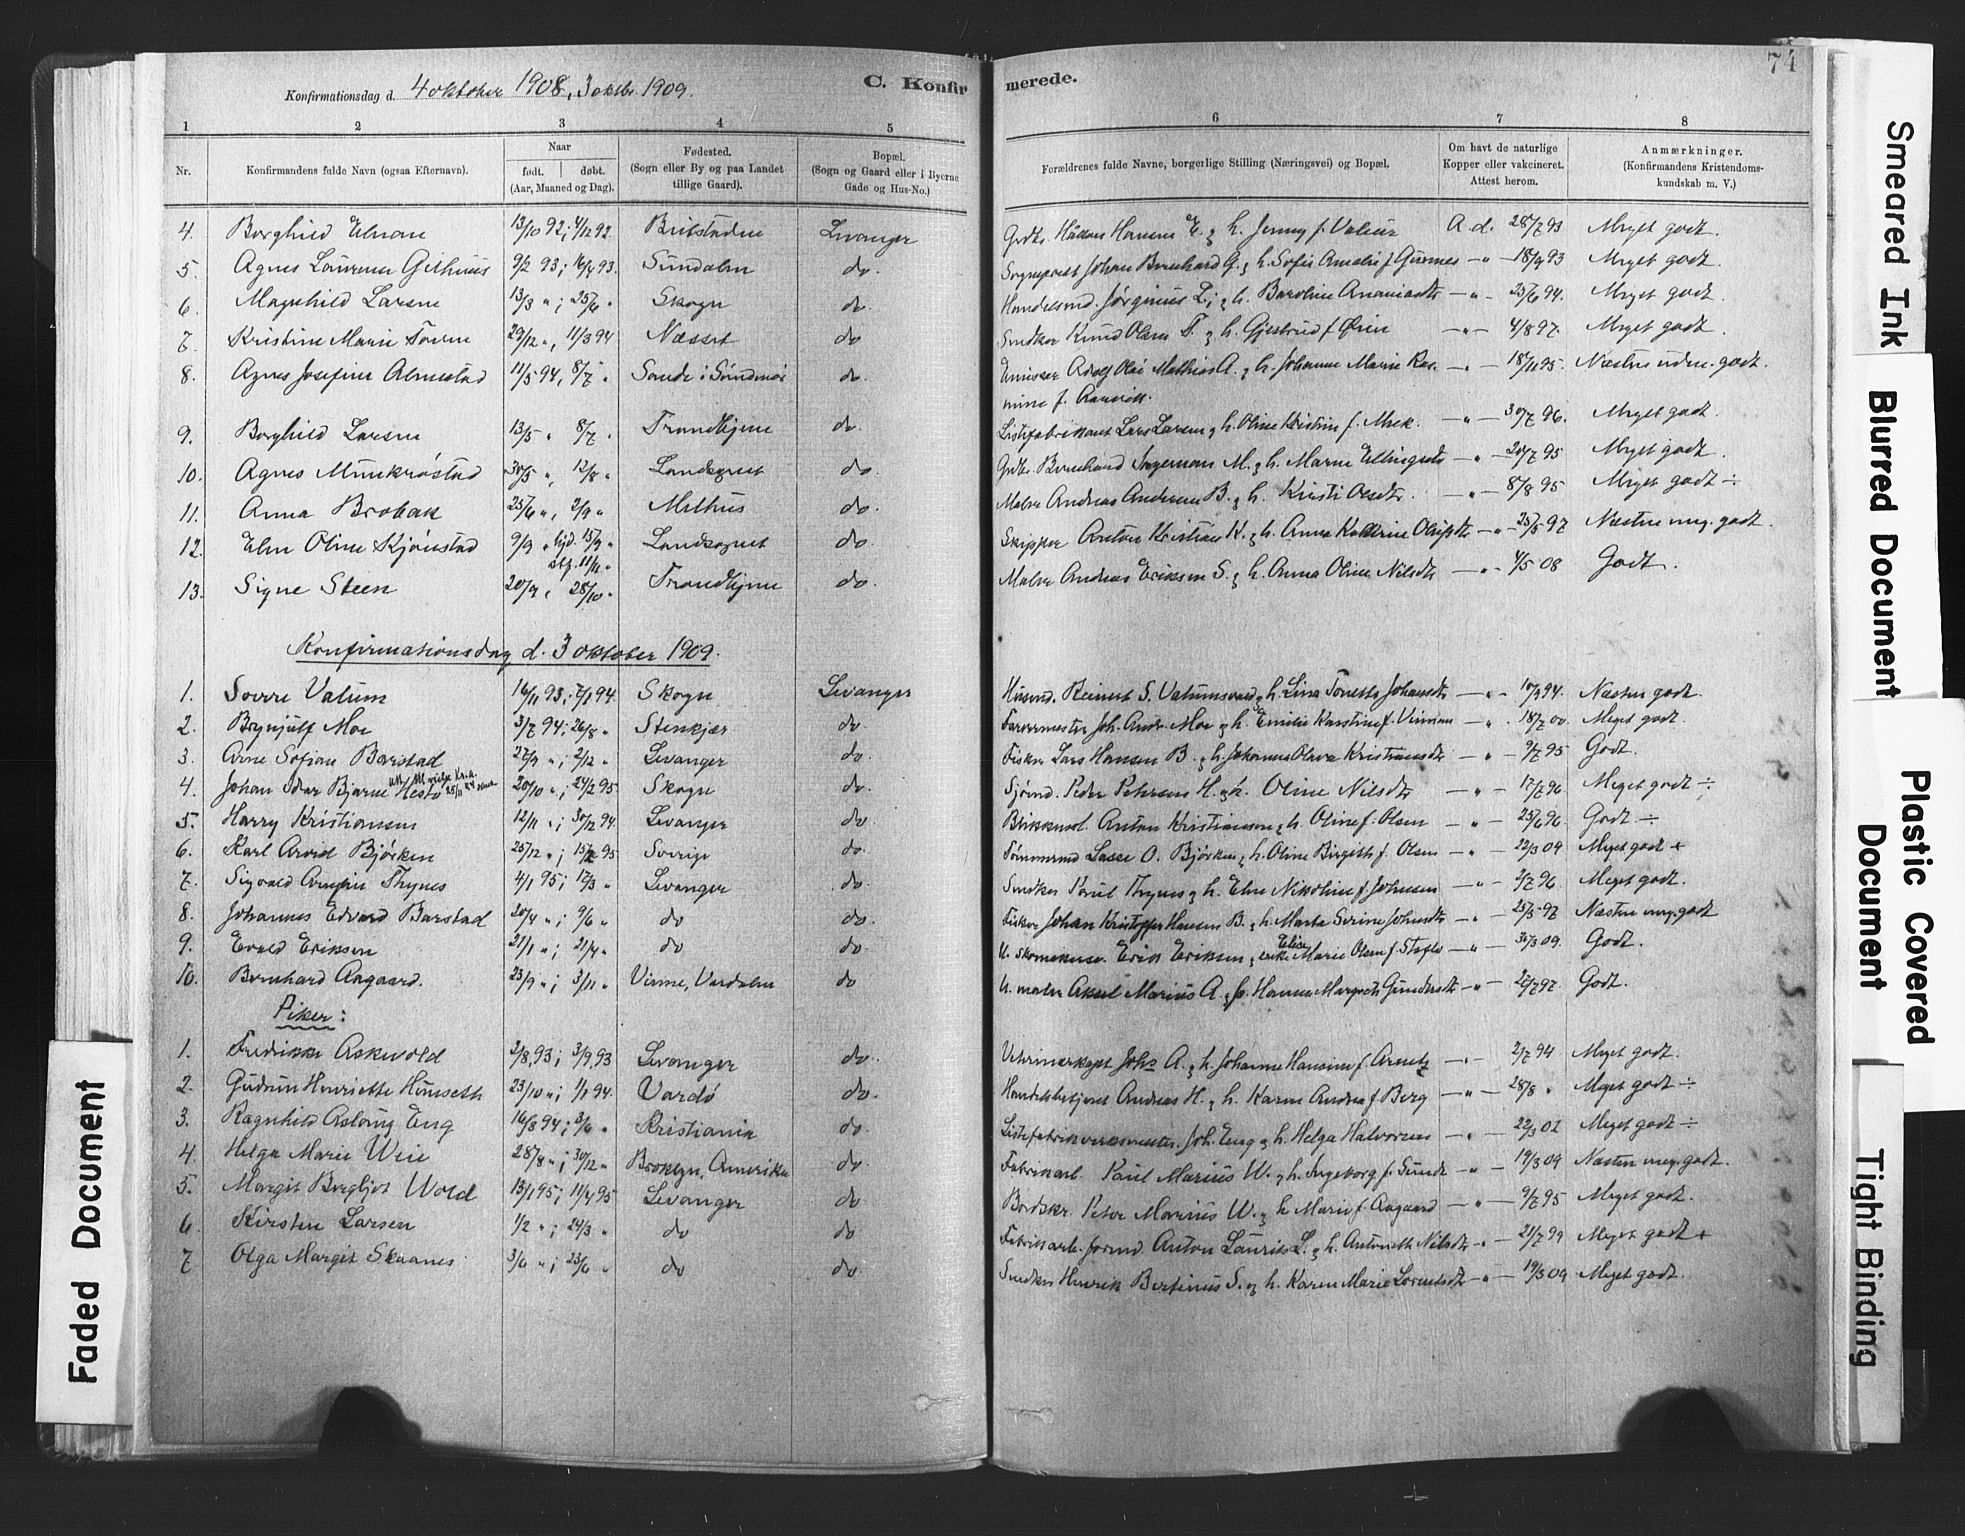 74
Konfirmationsdag d. 4 oktober 1908, 3 oktbr. 1909.
C. Konfirmerede.
1 2 3 4 5 6 7 8
Nr.
Konfirmandens fulde Navn (ogsaa Efternavn).
Naar
født. døbt.
(Aar, Maaned og Dag).
Fødested.
(Sogn eller By og paa Landet
tillige Gaard).
Bopæl.
(Sogn og Gaard eller i Byerne
Gade og Hus-No.)
Forældrenes fulde Navne, borgerlige Stilling (Næringsvei) og Bopæl.
Om havt de naturlige
Kopper eller vakcineret.
Attest herom.
Anmærkninger.
(Konfirmandens Kristendoms-
kundskab m. V.)
4. Borghild 13/10 92; 4/12 92. Levanger Grdbr. Haakon Hansen E. & h. Jenny f. A. d. 28/7 93 Meget godt.
5. Agnes Laurense 9/2 93; 16/4 93. Sundalen do. Sogneprest Johan Bernhard G. & h. Sofie Amalie f. —"— 18/9 93 Meget godt.
6. Magnhild Larsen 13/3 "; 25/6 " Skogn do. Handelsmd. Jørginus L. & h. —"— 25/6 94. Meget godt.
7. Kristine Marie 29/12 ", 11/3 94 Næsset do Snedker Knud Olsen T. & h. Gjertrud f. —"— 4/8 97. Meget godt.
8. Agnes Josefine Almestad 11/5 94, 8/7 " Sande i Søndmør do. Emissær Adolf Olai Mathias A. & h. Johanne Marie Ras- —"— 18/11 95. Næsten udm. godt.
mine f.
9. Borghild Larsen 13/5 " 8/7 " Trondhjem do. Listefabrikant Lars Larsen & h. Oline Kristine f. —"— 30/7 96. Meget godt.
10. Agnes Munkrøstad 30/5 ", 12/8 " Landsognet do. Grdbr. Bernhard M. & h. Maren —"— 20/7 95 Meget godt.
11. Anna Brobak 25/6 ", 2/9 " Melhus do. Maler Andreas Andersen B. & h. Kirsti —"— 8/8 95 Meget godt ÷
12. Elen Oline Kjønstad 9/9 " hjd. 15/9 " Landsognet do. Skipper Anton Kristian K. & h. Anna —"— 25/5 97 Næsten meg. godt.
stf. 11/11 "
13. Signe Steen 20/9 , 28/10 " Trondhjem do. Maler Andreas Eriksen S. & h. Anna Oline Nilsdtr —"— 4/5 08 Godt.
Konfirmationsdag d. 3 oktober 1909.
1. Sverre Valum 16/11 93; 7/1 94. Skogn Levanger Husmd. Reinert S. & h. Lina —"— 10/9 94. Næsten godt.
2. Brynjulf Moe 3/7 94; 26/8 " Stenkjær do. Farvermester Joh. Andr. Moe & h. Emilie Karstine f. —"— 18/7 00. Meget godt.
3. Arne Sofian Barstad 27/9 "; 2/12 " Levanger do. Fisker Lars Hansen B. & h. Johanna Olava Kristiansdtr —"— 9/7 95 Godt.
4. Johan Odar Bjarne Hestø 20/10 "; 24/2 95 Skogn do. Sjømd. Peder Petersen H. & h. Oline Nilsdtr —"— 17/7 96. Meget godt ÷
5. Harry Kristiansen 12/11 "; 30/12 94. Levanger do Blikkensl. Anton Kristiansen & h. Oline f. Olsen —"— 25/6 96. Godt ÷
6. Karl Arvid Bjørken 25/12 "; 95 Sverige do. Tømmermd Lasse O. Bjørken & h. Oline Birgitte f. Olsen —"— 22/3 09 Meget godt +
7. Sigvald Arnfin Thynes 4/1 95; 17/3 " Levanger do. Snedker Paul Thynes & h. Elen Nikoline f. Johnsen —"— 2/7 96. Meget godt.
8. Johannes Edvard Barstad 20/4 "; 9/6 " do do. Fisker Johan Kristoffer Hansen B. & h. Marta Serine —"— 25/5 97 Næsten meg. godt
9. Evald Eriksen 21/1 "; 21/4 " do do. U. skomakersv. Erik Eriksen & enke Elise Marie Olsen f. —"— 30/3 09. Godt.
10. Bernhard Aagaard. 23/9 "; 3/11 " Vinne, Værdalen do U. maler Aksel Marius A. & h. Hanna —"— 97. Godt.
Piker:
1. Fredrikke Askevold 2/8 93; 3/9 93 Levanger do. Veterinærkapt. Johs A. & h. Johanne Hansine f. —"— 2/7 94 Meget godt.
2. Gudrun Henriette Hunseth 23/10 "; 1/1 94. Vardø do. Handelsbetjent Andreas H. & h. Karen Andrea f. Berg —"— 28/8 " Meget godt ÷
3. Ragnhild Aslaug Eng 16/3 94; 3/6 " Kristiania do. Listefabrikverksmester Joh. Eng & h. Helga Halvorsen —"— 22/3 02 Meget godt ÷
4. Helga Marie Weie 28/8 "; 30/12 " Broklyn, Amerika do. Fabrikarb. Paul Marius W. & h. Ingeborg f. —"— 19/3 09 Næsten meg. godt.
5. Margit Bergljot Wold 13/1 95; 11/4 95 Levanger do Peter Marius W. & h. Marie f. Aagaard —"— 9/7 95 Meget godt.
6. Kirsten Larsen 1/2 "; 24/3 " do do Fabrikarb. formd. Anton Laurits L. & h. Antonette Nilsdtr —"— 21/7 99 Meget godt +
7 Olga Margit Skaanes 3/6 "; 23/6 " do do. Snedker Henrik Bertinius S. & h. Karen Marie Lorentsdtr —"— 19/3 09 Meget godt.
Faded Document
Smeared Ink
Blurred Document
Plastic Covered
Document
Tight Binding